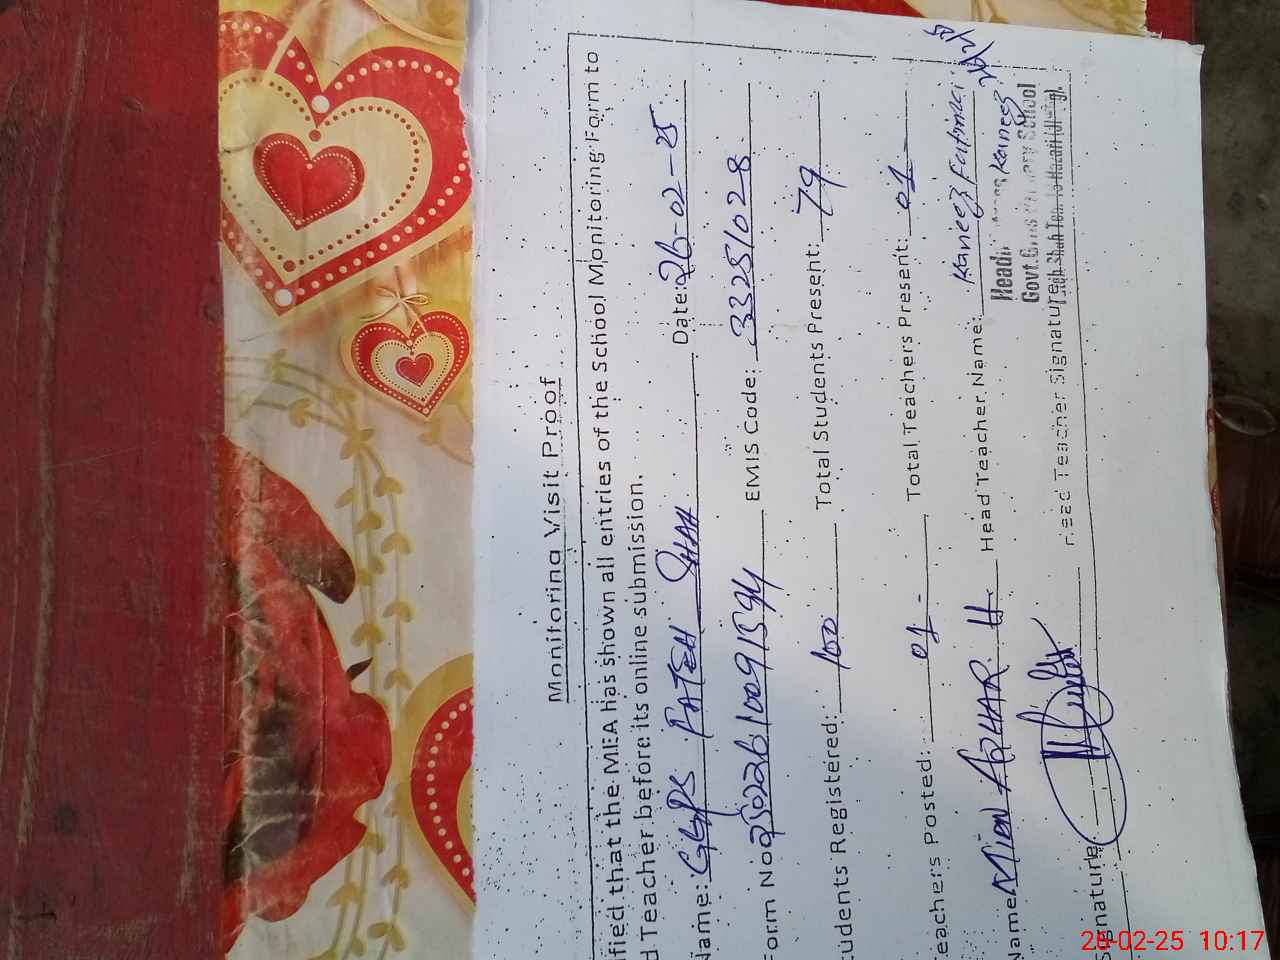 Monitoring Visit Proof
ified that the MEA has shown all entries of the School Monitoring Form to
d Teacher before its online submission.
Name: GGPS FATEH SHAH Date: 26-02-25
Form No. EMIS Code: 33251028
tudents Registered: 100 Total Students Present: 79
Teachers Posted: 01 Total Teachers Present: 01
Name: Mian AZHAR H. Head Teacher Name: Kaneez Fatima
Kaneez
Govt. School
Signature Head Teacher Signature
26-02-25 10:17